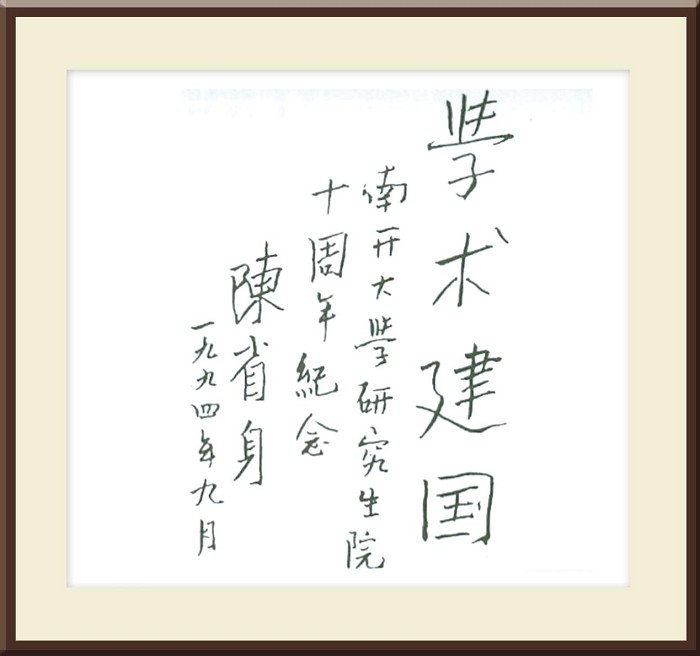 學术建国
南开大學研究生院
十周年紀念
陳省身
一九九四年九月